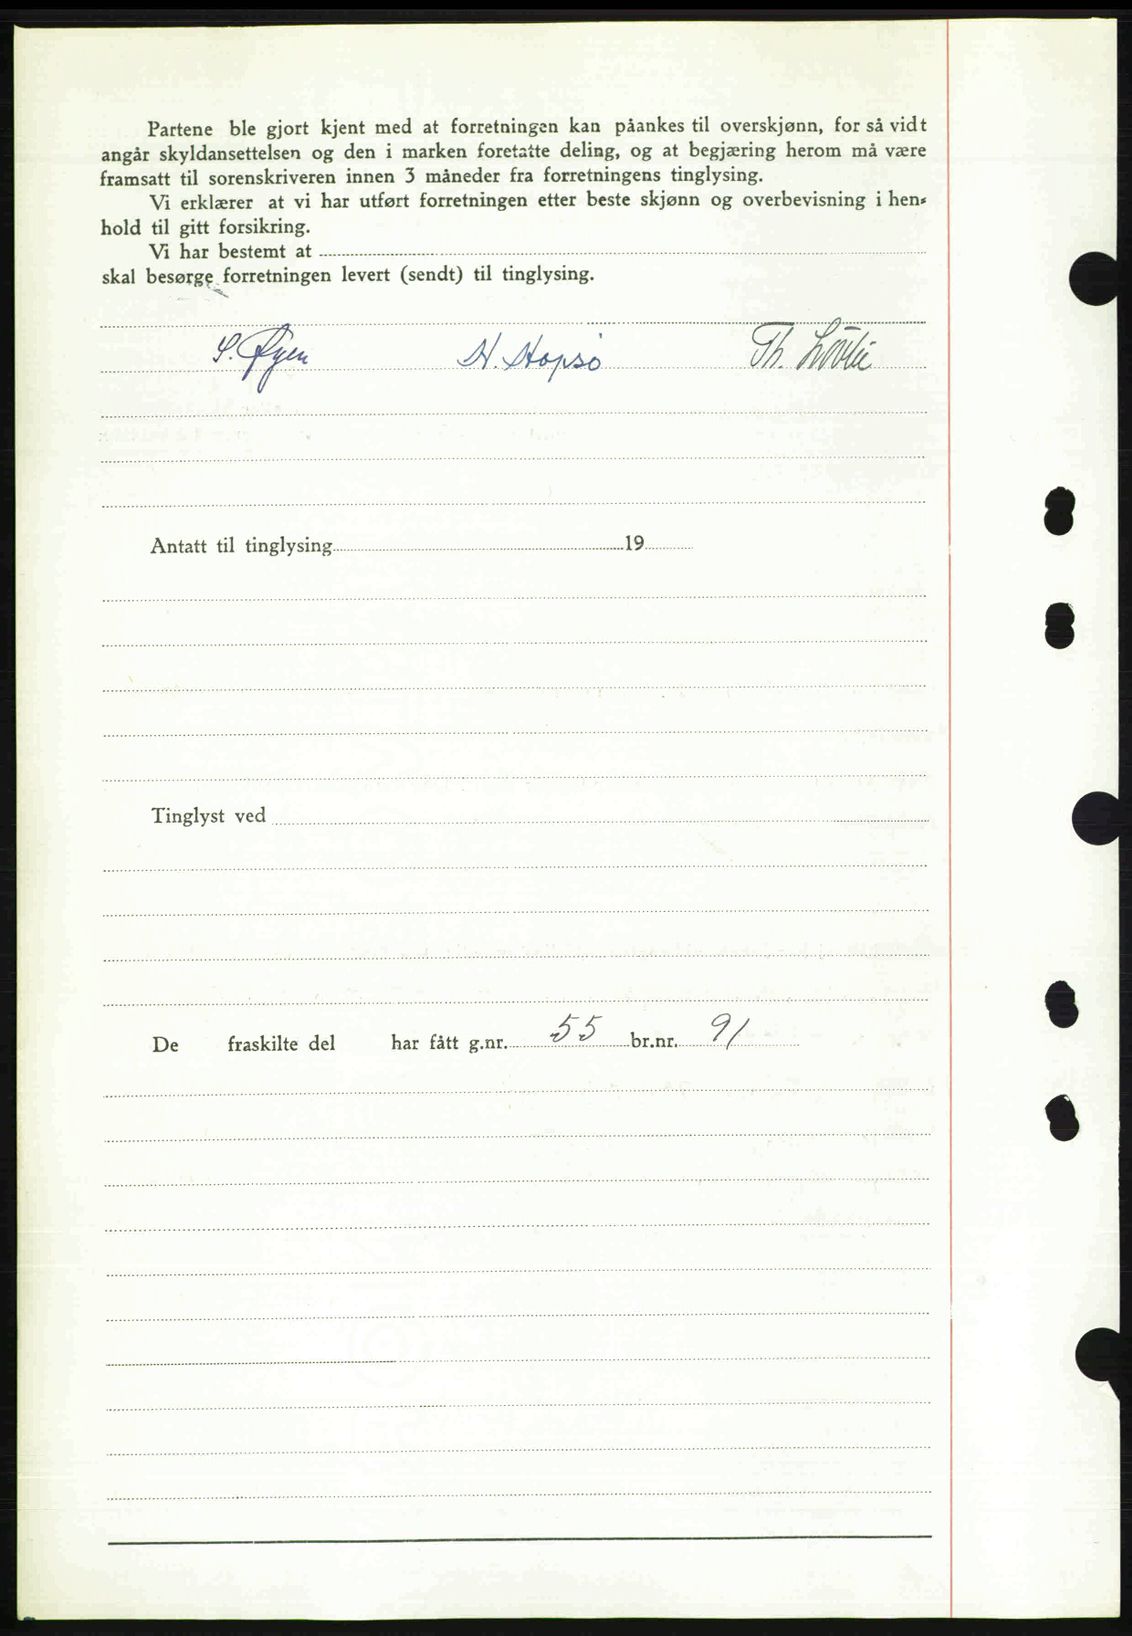 Partene ble gjort kjent med at forretningen kan påankes til overskjønn, for så vidt
angår skyldansettelsen og den i marken foretatte deling, og at begjæring herom må være
framsatt til sorenskriveren innen 3 måneder fra forretningens tinglysing.
Vi erklærer at vi har utført forretningen etter beste skjønn og overbevisning i hen-
hold til gitt forsikring.
Vi har bestemt at
skal besørge forretningen levert (sendt) til tinglysing.
S. Øyen H. Hopsø Th.
Antatt til tinglysing 19
Tinglyst ved
De fraskilte del har fått g.nr. 55 br.nr. 91